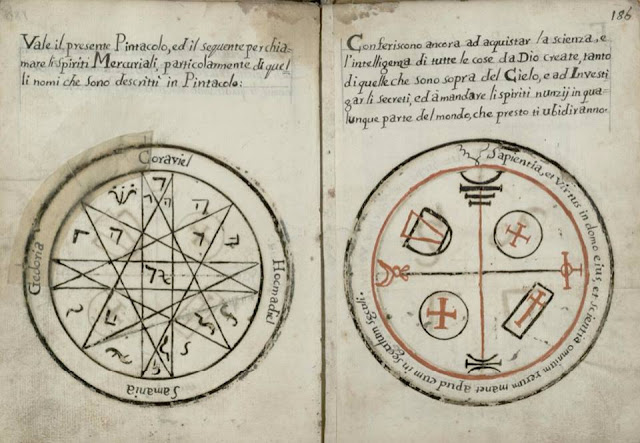 Vale il presente Pintacolo, ed il sequente per chia=
mare li Spiriti Mercuriali, particolarmente di quel
li nomi che sono descritti in Pintacolo:
Coraviel
Hocmadiel
Samania
Gedoria
186
Conferiscono ancora ad acquistar la scienza, e
l'intelligenza di tutte le cose da Dio create, tanto
di quelle che sono sopra del Cielo, e ad Investi
gar li secreti, ed à mandare li spiriti nunzij in qua=
lunque parte del mondo, che presto ti ubidiranno.
Sapientia, et Virtus in domo ejus, et scientia omnium rerum manet apud eum in seculum seculi.